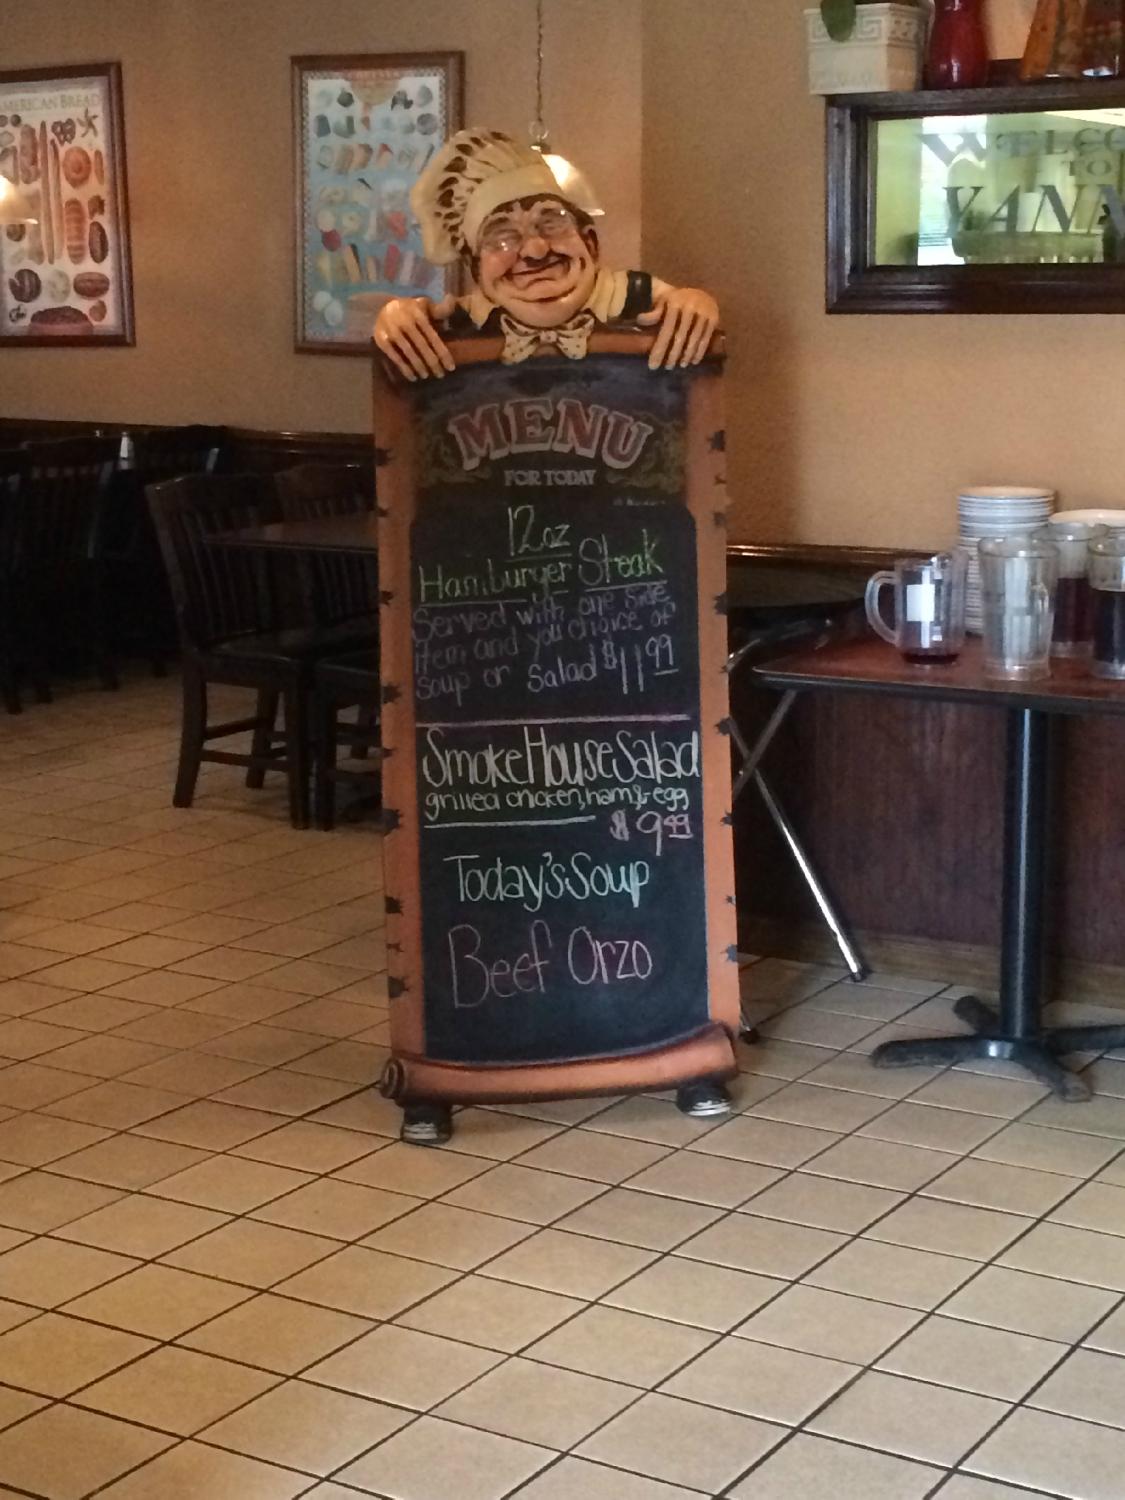 AMERICAN BREAD
WELCO
TO
YANN
MENU
FOR TODAY
12oz
Hamburger Steak
Served with one side
item and you choice of
soup or Salad $11.99
SmokeHouse Salad
grilled chicken, ham & egg
$9.99
Today's Soup
Beef Orzo